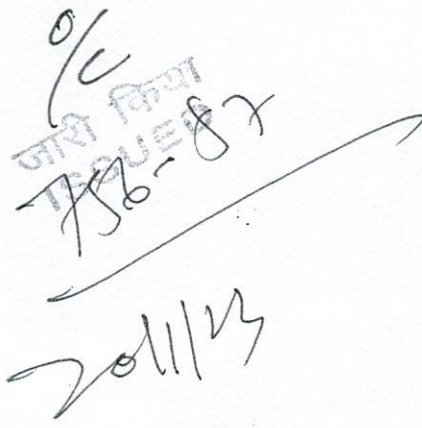 O/C
जारी किया
ISSUED
756-87
20/11/23